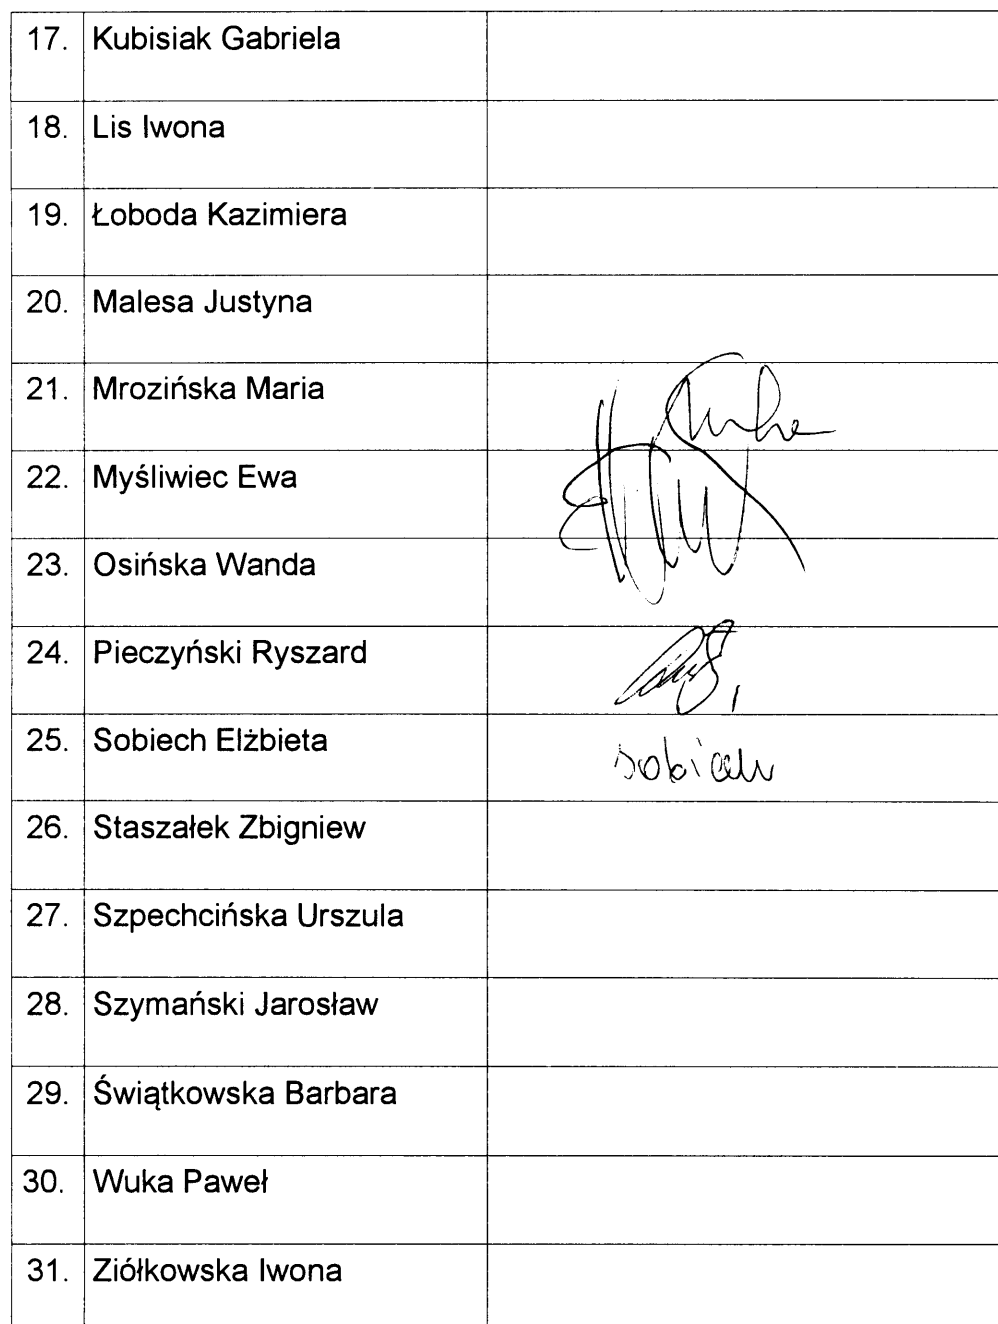 17. Kubisiak Gabriela
18. Lis Iwona
19. Łoboda Kazimiera
20. Malesa Justyna
21. Mrozińska Maria
22. Myśliwiec Ewa
23. Osińska Wanda
24. Pieczyński Ryszard
25. Sobiech Elżbieta sobiech
26. Staszałek Zbigniew
27. Szpechcińska Urszula
28. Szymański Jarosław
29. Świątkowska Barbara
30. Wuka Paweł
31. Ziółkowska Iwona